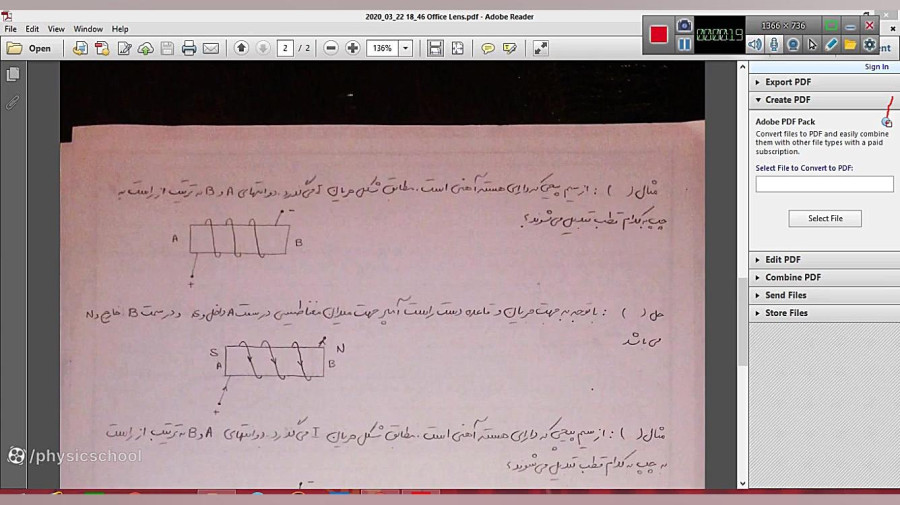 2020_03_22 18_46 Office Lens.pdf - Adobe Reader
1366 X 736
File Edit View Window Help
000019
Open
2 / 2
136%
Sign In
Export PDF
Create PDF
Adobe PDF Pack
Convert files to PDF and easily combine
them with other file types with a paid
subscription.
Select File to Convert to PDF:
Select File
Edit PDF
Combine PDF
Send Files
Store Files
مثال ( ) : از سیم پیچی که دارای هسته آهنی است، مطابق شکل جریان I می‌گذرد، دو انتهای A و B به ترتیب از راست به
چپ به کدام قطب تبدیل می‌شوند؟
-
A
B
+
حل ( ) : با توجه به جهت جریان و قاعده دست راست جهت میدان مغناطیسی در سمت A داخل و S و در سمت B خارج و N
می باشد
S
N
A
B
+
مثال ( ) : از سیم پیچی که دارای هسته آهنی است، مطابق شکل جریان I می‌گذرد، دو انتهای A و B به ترتیب از راست
به چپ به کدام قطب تبدیل می‌شوند؟
-
/physicschool